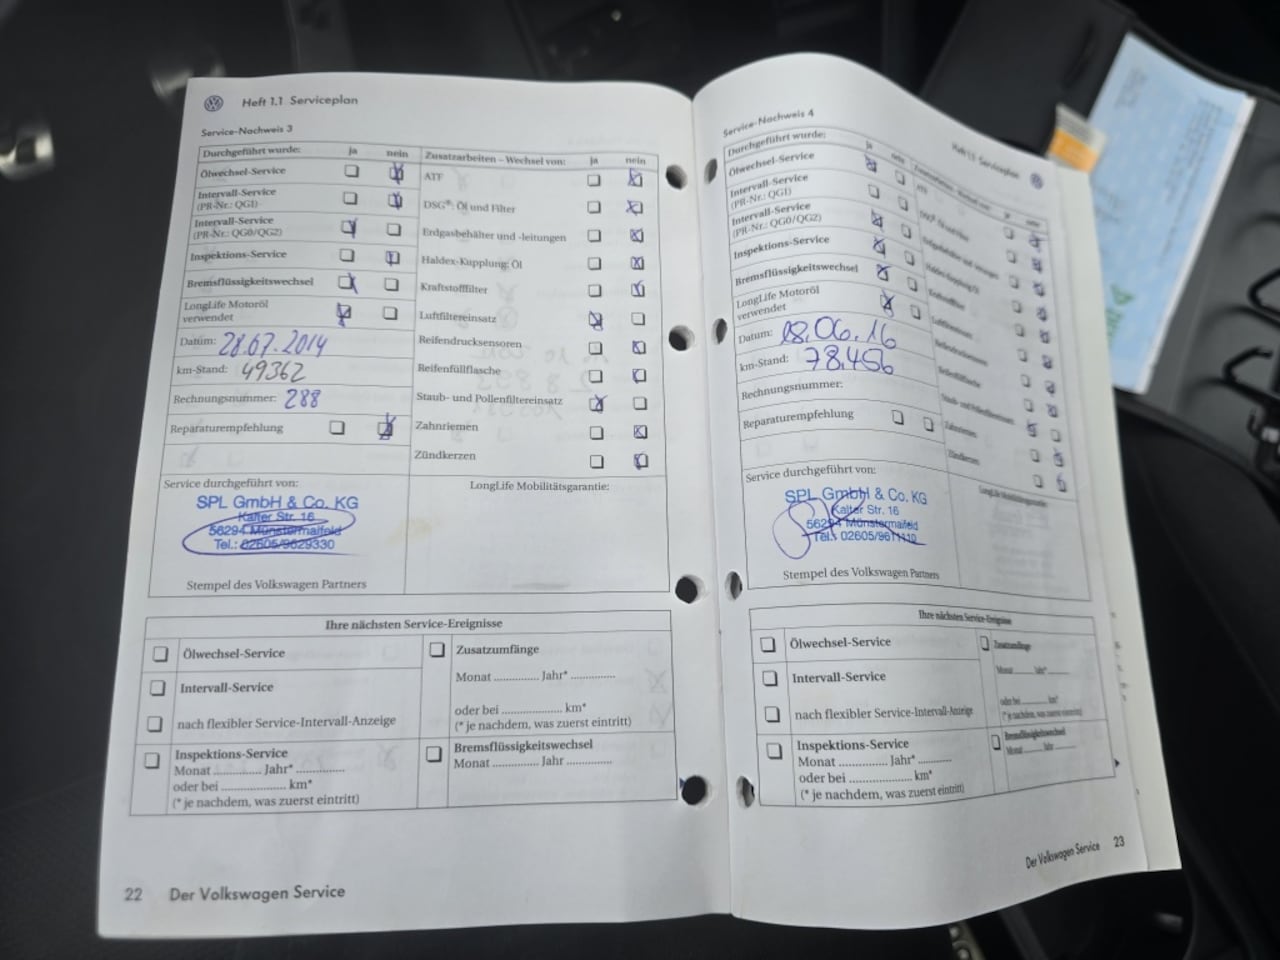 Heft 1.1 Serviceplan
Service-Nachweis 3
Durchgeführt wurde: ja nein
Ölwechsel-Service
Intervall-Service
(PR-Nr.: QG1)
Intervall-Service
(PR-Nr.: QG0/QG2)
Inspektions-Service
Bremsflüssigkeitswechsel
LongLife Motoröl
verwendet
Datum: 28.07.2014
km-Stand: 49362
Rechnungsnummer: 288
Reparaturempfehlung
Zusatzarbeiten – Wechsel von: ja nein
ATF
DSG®: Öl und Filter
Erdgasbehälter und -leitungen
Haldex-Kupplung: Öl
Kraftstofffilter
Luftfiltereinsatz
Reifendrucksensoren
Reifenfüllflasche
Staub- und Pollenfiltereinsatz
Zahnriemen
Zündkerzen
Service durchgeführt von:
SPL GmbH & Co. KG
Kalter Str. 16
56294 Münstermaifeld
Tel.: 02605/9629330
Stempel des Volkswagen Partners
LongLife Mobilitätsgarantie:
Ihre nächsten Service-Ereignisse
Ölwechsel-Service
Intervall-Service
nach flexibler Service-Intervall-Anzeige
Inspektions-Service
Monat .............. Jahr* ..............
oder bei .................... km*
(* je nachdem, was zuerst eintritt)
Zusatzumfänge
Monat .............. Jahr* ..............
oder bei .................... km*
(* je nachdem, was zuerst eintritt)
Bremsflüssigkeitswechsel
Monat .............. Jahr ..............
22 Der Volkswagen Service
Heft 1.1 Serviceplan
Service-Nachweis 4
Durchgeführt wurde: ja nein
Ölwechsel-Service
Intervall-Service
(PR-Nr.: QG1)
Intervall-Service
(PR-Nr.: QG0/QG2)
Inspektions-Service
Bremsflüssigkeitswechsel
LongLife Motoröl
verwendet
Datum: 08.06.16
km-Stand: 78.456
Rechnungsnummer:
Reparaturempfehlung
ATF
DSG®: Öl und Filter
Erdgasbehälter und -leitungen
Haldex-Kupplung: Öl
Kraftstofffilter
Luftfiltereinsatz
Reifendrucksensoren
Reifenfüllflasche
Staub- und Pollenfiltereinsatz
Zahnriemen
Zündkerzen
Service durchgeführt von:
SPL GmbH & Co. KG
Kalter Str. 16
56294 Münstermaifeld
Stempel des Volkswagen Partners
LongLife Mobilitätsgarantie:
Ihre nächsten Service-Ereignisse
Ölwechsel-Service
Intervall-Service
nach flexibler Service-Intervall-Anzeige
Inspektions-Service
Monat .............. Jahr* ..............
oder bei .................... km*
(* je nachdem, was zuerst eintritt)
Zusatzumfänge
Monat .............. Jahr* ..............
oder bei .................... km*
(* je nachdem, was zuerst eintritt)
Bremsflüssigkeitswechsel
Monat .............. Jahr ..............
Der Volkswagen Service 23